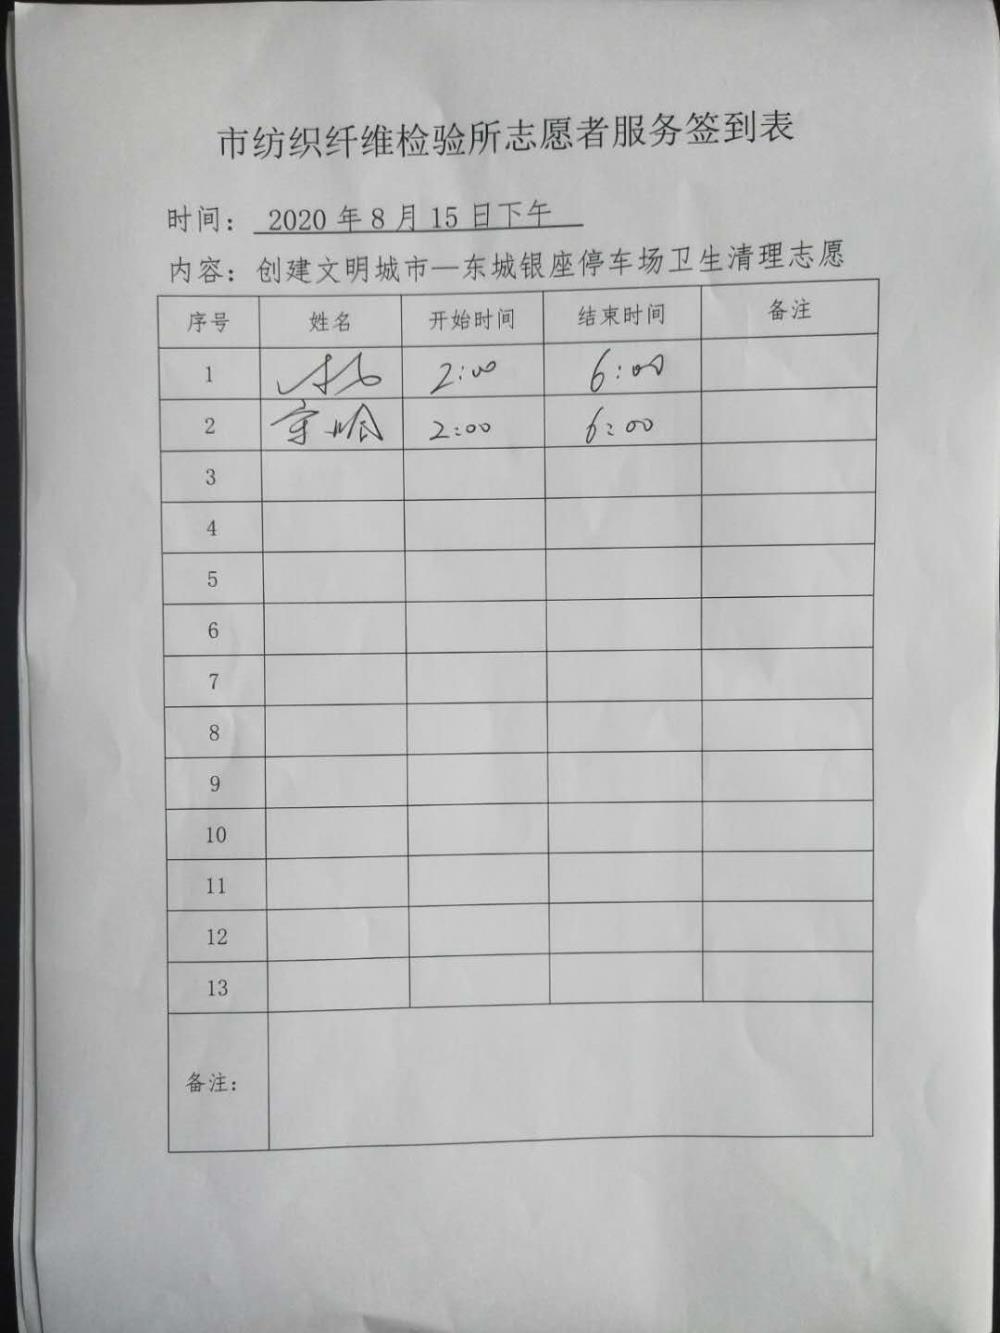 市纺织纤维检验所志愿者服务签到表
时间： 2020 年 8 月 15 日下午
内容：创建文明城市—东城银座停车场卫生清理志愿
序号 姓名 开始时间 结束时间 备注
1 2:00 6:00
2 2:00 6:00
3
4
5
6
7
8
9
10
11
12
13
备注：